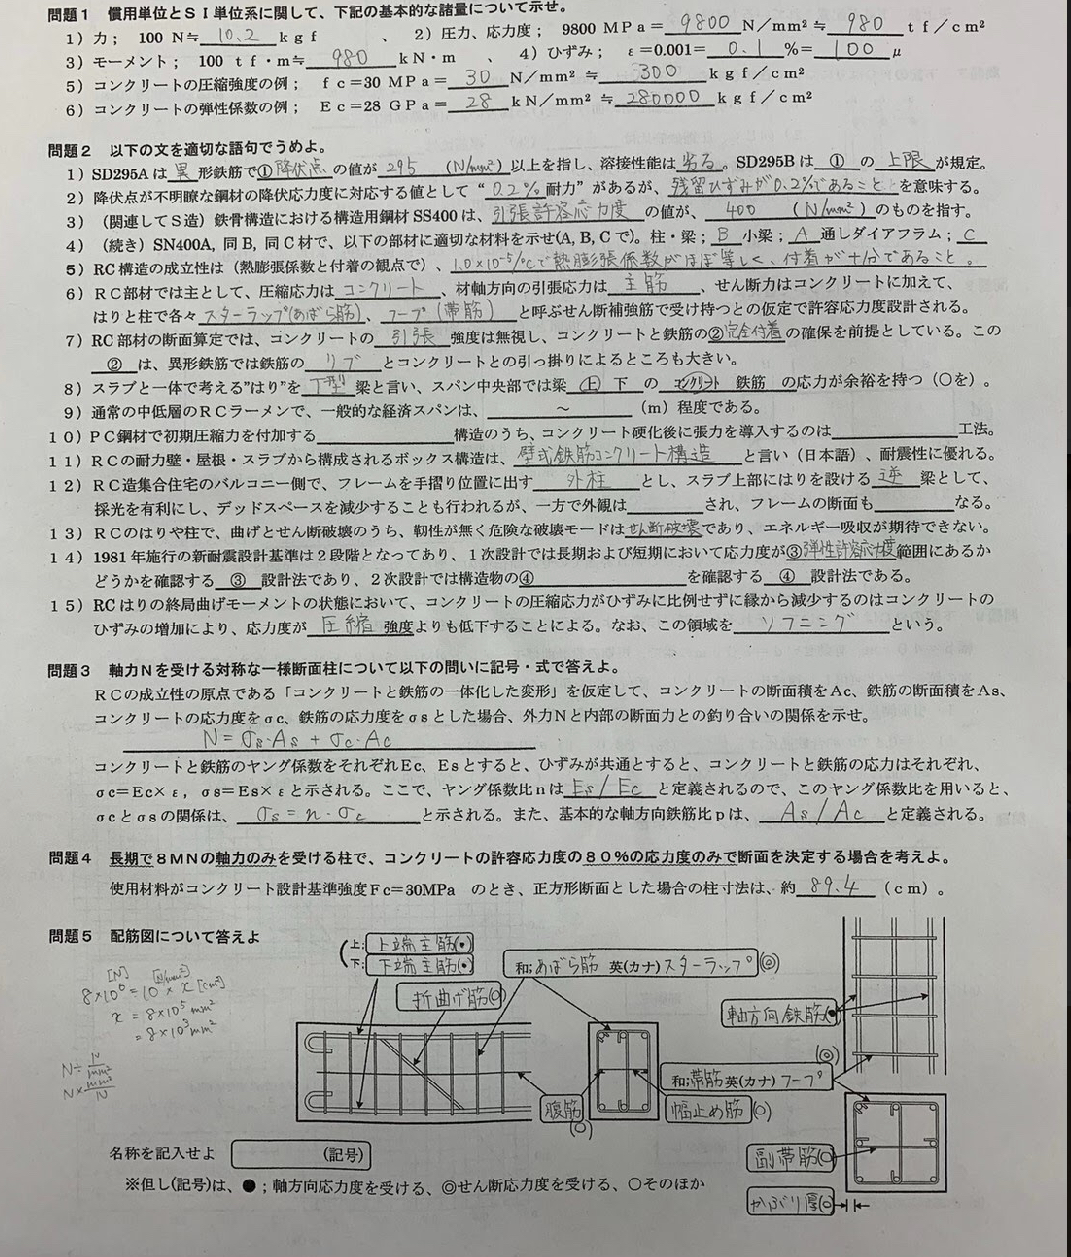 問題1 慣用単位とSI単位系に関して、下記の基本的な諸量について示せ。
1）力； 100 N≒ 10.2 kgf 、 2）圧力、応力度； 9800 MPa＝ 9800 N/mm²≒ 980 tf/cm²
3）モーメント； 100 tf・m≒ 980 kN・m 、 4）ひずみ； ε=0.001= 0.1 %= 100 μ
5）コンクリートの圧縮強度の例； fc=30 MPa= 30 N/mm² ≒ 300 kgf/cm²
6）コンクリートの弾性係数の例； Ec=28 GPa= 28 kN/mm² ≒ 280000 kgf/cm²
問題2 以下の文を適切な語句でうめよ。
1）SD295Aは 異 形鉄筋で①降伏点 の値が 295 （N/mm²）以上を指し、溶接性能は 劣る 。SD295Bは ① の 上限 が規定。
2）降伏点が不明瞭な鋼材の降伏応力度に対応する値として“ 0.2% 耐力”があるが、残留ひずみが0.2%であること を意味する。
3）（関連してS造）鉄骨構造における構造用鋼材SS400は、引張許容応力度 の値が、 400 （N/mm²）のものを指す。
4）（続き）SN400A, 同B, 同C材で、以下の部材に適切な材料を示せ(A, B, Cで)。柱・梁； B 小梁； A 通しダイアフラム； C
5）RC構造の成立性は（熱膨張係数と付着の観点で）、1.0×10⁻⁵/℃で熱膨張係数がほぼ等しく、付着が十分であること 。
6）RC部材では主として、圧縮応力は コンクリート 、材軸方向の引張応力は 主筋 、せん断力はコンクリートに加えて、
はりと柱で各々 スターラップ(あばら筋)、フープ(帯筋) と呼ぶせん断補強筋で受け持つとの仮定で許容応力度設計される。
7）RC部材の断面算定では、コンクリートの 引張 強度は無視し、コンクリートと鉄筋の②完全付着の確保を前提としている。この
② は、異形鉄筋では鉄筋の リブ とコンクリートとの引っ掛りによるところも大きい。
8）スラブと一体で考える”はり”を T型 梁と言い、スパン中央部では梁 上 下 の コンクリート 鉄筋 の応力が余裕を持つ（○を）。
9）通常の中低層のRCラーメンで、一般的な経済スパンは、 ～ （m）程度である。
10）PC鋼材で初期圧縮力を付加する 構造のうち、コンクリート硬化後に張力を導入するのは 工法。
11）RCの耐力壁・屋根・スラブから構成されるボックス構造は、 壁式鉄筋コンクリート構造 と言い（日本語）、耐震性に優れる。
12）RC造集合住宅のバルコニー側で、フレームを手摺り位置に出す 外柱 とし、スラブ上部にはりを設ける 逆 梁として、
採光を有利にし、デッドスペースを減少することも行われるが、一方で外観は され、フレームの断面も なる。
13）RCのはりや柱で、曲げとせん断破壊のうち、靭性が無く危険な破壊モードはせん断破壊であり、エネルギー吸収が期待できない。
14）1981年施行の新耐震設計基準は2段階となってあり、1次設計では長期および短期において応力度が③弾性許容応力度範囲にあるか
どうかを確認する ③ 設計法であり、2次設計では構造物の④ を確認する ④ 設計法である。
15）RCはりの終局曲げモーメントの状態において、コンクリートの圧縮応力がひずみに比例せずに縁から減少するのはコンクリートの
ひずみの増加により、応力度が 圧縮 強度よりも低下することによる。なお、この領域を ソフニング という。
問題3 軸力Nを受ける対称な一様断面柱について以下の問いに記号・式で答えよ。
RCの成立性の原点である「コンクリートと鉄筋の一体化した変形」を仮定して、コンクリートの断面積をAc、鉄筋の断面積をAs、
コンクリートの応力度をσc、鉄筋の応力度をσsとした場合、外力Nと内部の断面力との釣り合いの関係を示せ。
N = σs・As + σc・Ac
コンクリートと鉄筋のヤング係数をそれぞれEc、Esとすると、ひずみが共通とすると、コンクリートと鉄筋の応力はそれぞれ、
σc=Ec×ε，σs=Es×εと示される。ここで、ヤング係数比nは Es/Ec と定義されるので、このヤング係数比を用いると、
σcとσsの関係は、 σs = n・σc と示される。また、基本的な軸方向鉄筋比pは、 As/Ac と定義される。
問題4 長期で8MNの軸力のみを受ける柱で、コンクリートの許容応力度の80％の応力度のみで断面を決定する場合を考えよ。
使用材料がコンクリート設計基準強度Fc=30MPa のとき、正方形断面とした場合の柱寸法は、約 89.4 （cm）。
問題5 配筋図について答えよ
上; 上端主筋(●)
下; 下端主筋(●)
和;あばら筋 英(カナ)スターラップ (◎)
折曲げ筋(○)
[N] [N/mm²]
8×10⁶ = 10 × x [cm²]
x = 8×10⁵ mm²
= 8×10³ mm²
N÷ N/mm²
N× mm²/N
軸方向鉄筋(●)
(◎)
和;帯筋 英(カナ)フープ
腹筋
(○)
幅止め筋(○)
副帯筋(○)
かぶり厚(○)
名称を記入せよ （記号）
※但し(記号)は、●；軸方向応力度を受ける、◎せん断応力度を受ける、○そのほか